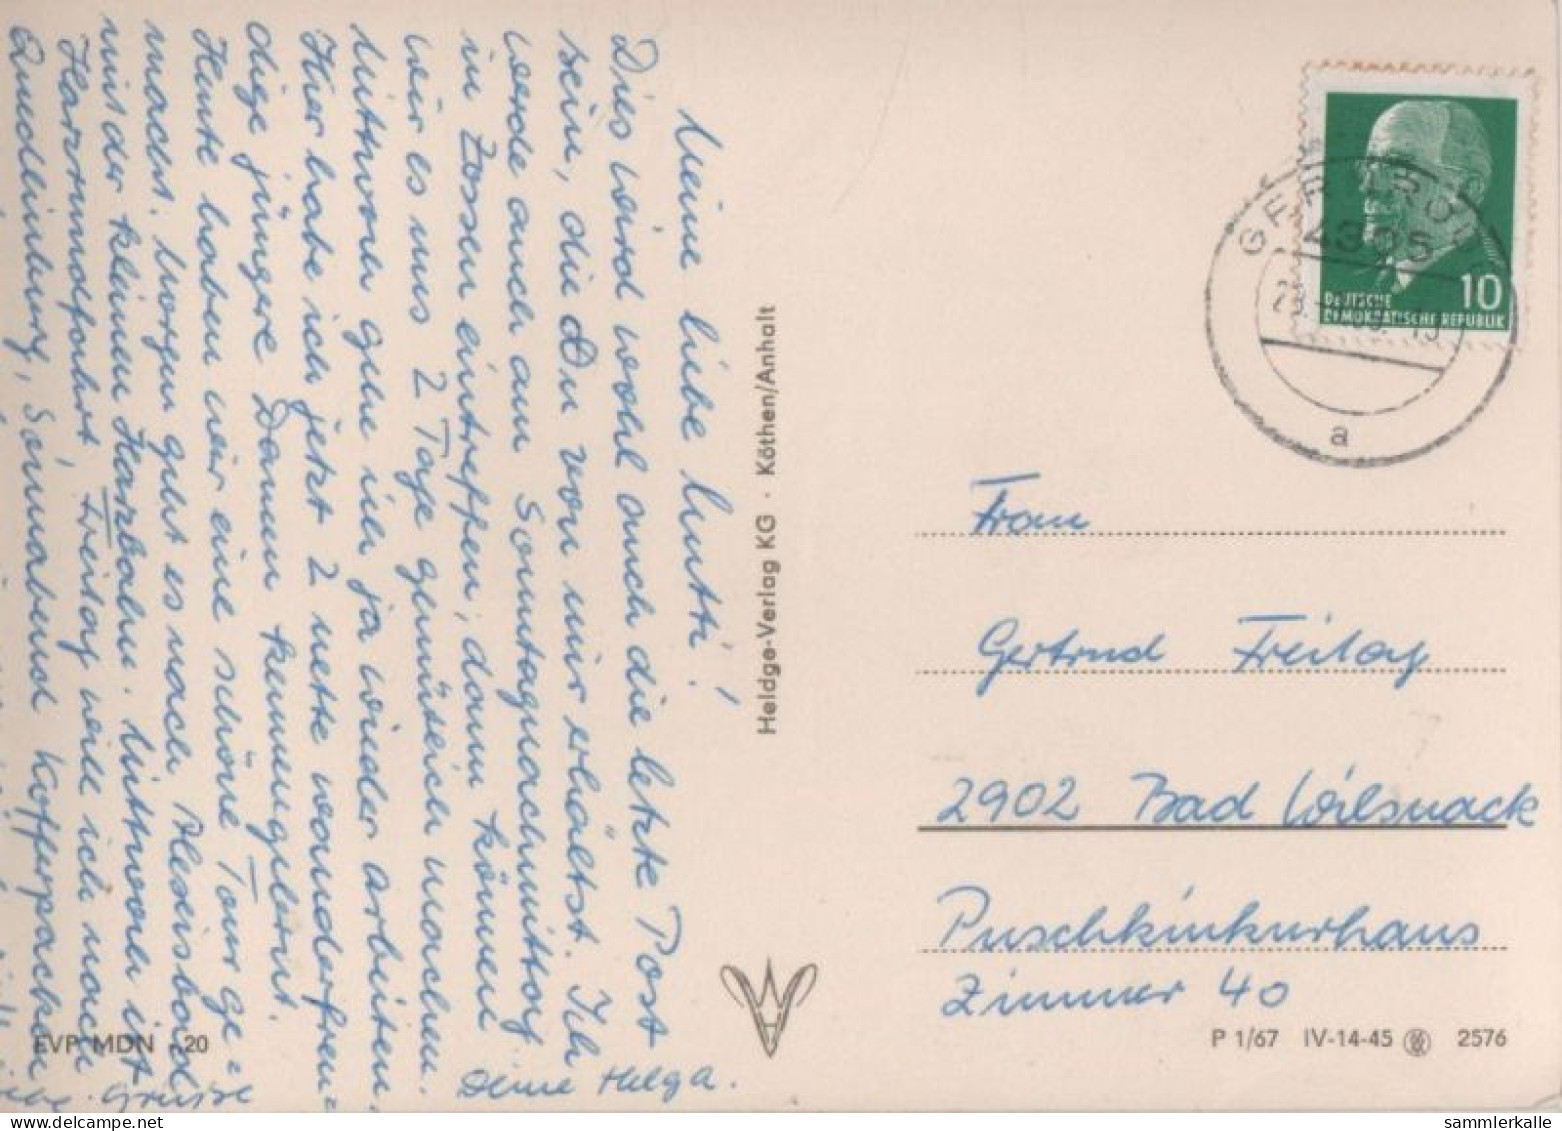 Meine liebe Mutti!
Dies wird wohl auch die letzte Post
sein, die Du von mir erhältst. Ich
werde auch am Sonntagnachmittag
in Zossen eintreffen, dann können
wir es uns 2 Tage gemütlich machen.
Mittwoch gehe ich ja wieder arbeiten.
Hier habe ich jetzt 2 nette wanderfreu=
dige jüngere Damen kennengelernt.
Heute haben wir eine schöne Tour ge=
macht. Morgen geht es nach Alexisbad
mit der kleinen Harzbahn. Mittwoch ist
Harzrundfahrt, Freitag will ich nach
Quedlinburg, Sonnabend Kofferpacken
Grüße
Deine Helga.
Heldge-Verlag KG · Köthen/Anhalt
EVP MDN -,20
GERNRODE
4305
a
10
DEUTSCHE
DEMOKRATISCHE REPUBLIK
Frau
Gertrud Freitag
2902 Bad Wilsnack
Puschkinkurhaus
Zimmer 40
P 1/67 IV-14-45 2576
sammlerkalle